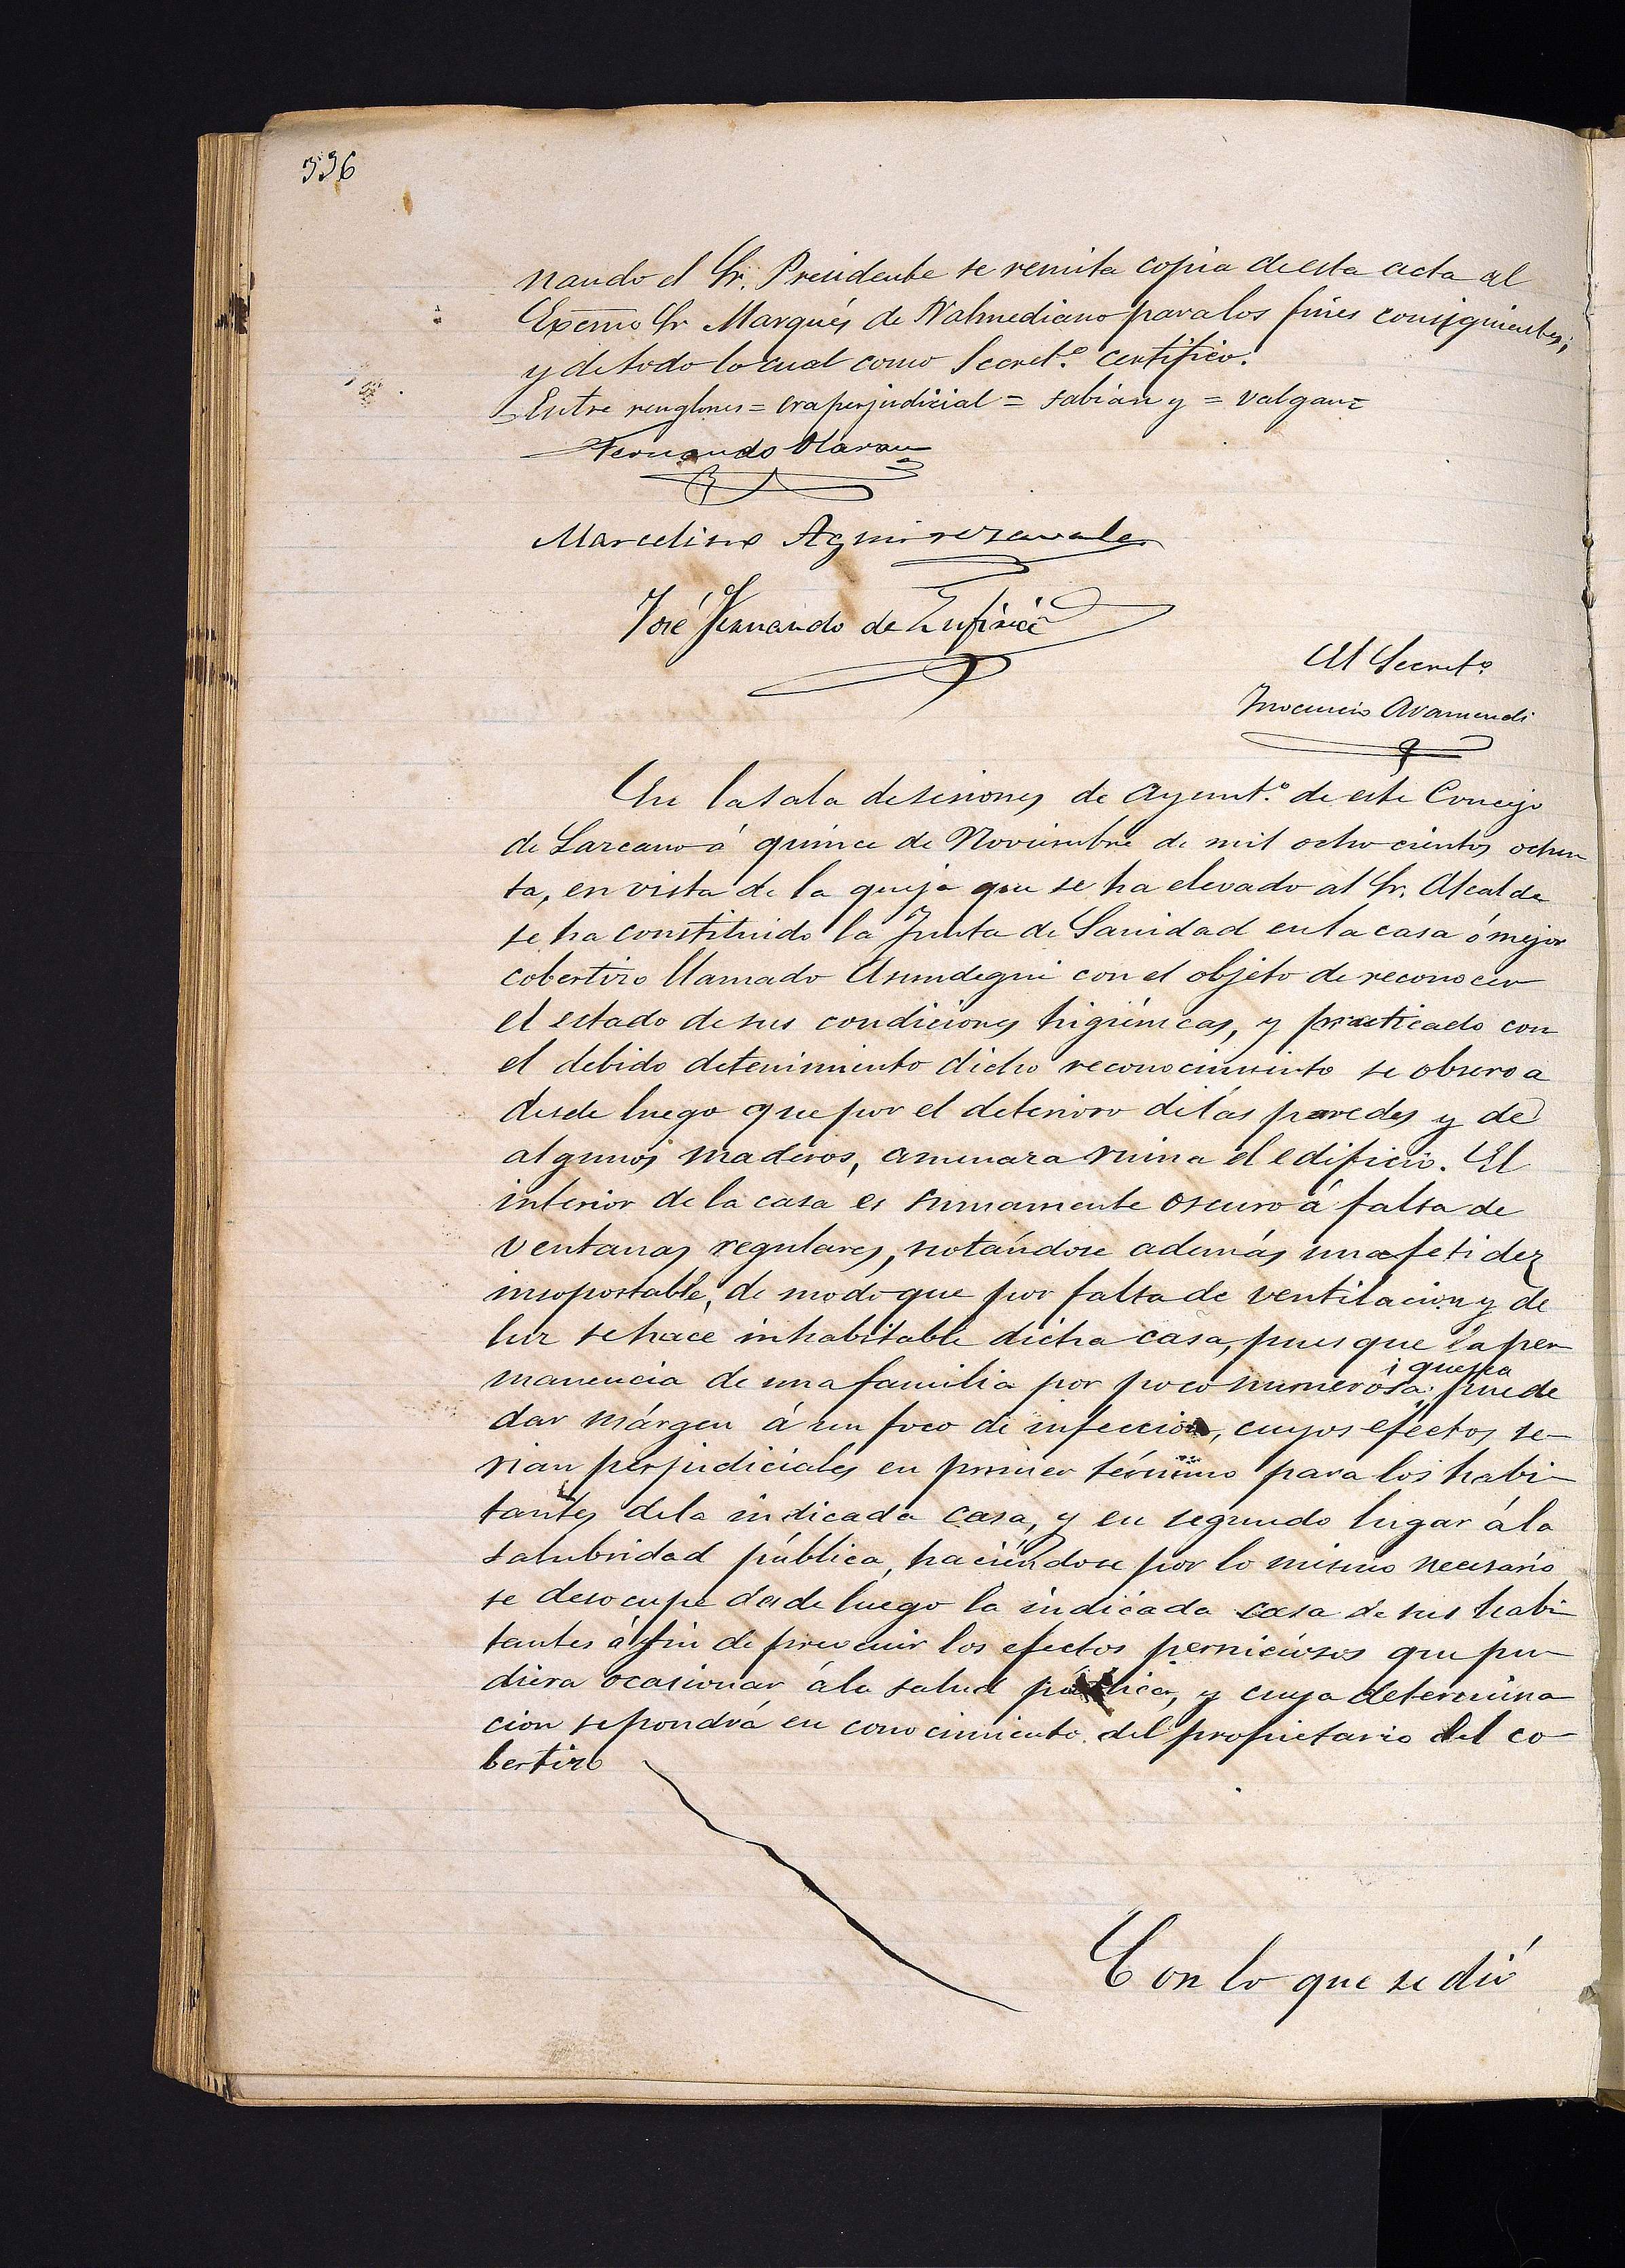 336
nando el Sr. Presidente se remita copia de esta acta al
Excmo Sr Marqués de Valmediano para los fines consiguientes;
y de todo lo cual como Secret.º certifico.
Entre renglones = era perjudicial = sabían y = valgan =
Fernando Olaran
Marcelino Aguirrezavala
José Fernando de
El Secret.º
Inocencio Aramendi
En la sala de sesiones de Ayunt.º de este Concejo
de Lazcano á quince de Noviembre de mil ocho cientos ochen
ta, en vista de la queja que se ha elevado al Sr. Alcalde
se ha constituido la Junta de Sanidad en la casa ó mejor
cobertizo llamado Asundegui con el objeto de reconocer
el estado de sus condiciones higiénicas, y practicado con
el debido detenimiento dicho reconocimiento se observa
desde luego que por el deterioro de las paredes y de
algunos maderos, amenaza ruina el edificio. El
interior de la casa es sumamente oscuro á falta de
ventanas regulares, notándose además una fetidez
insoportable, de modo que por falta de ventilacion y de
luz se hace inhabitable dicha casa, pues que la per
manencia de una familia por poco numerosa que sea puede
dar márgen á un foco de infeccion, cuyos efectos se-
rian perjudiciales en primer término para los habi-
tantes de la indicada casa, y en segundo lugar á la
salubridad pública, haciéndose por lo mismo necesario
se desocupe desde luego la indicada casa de sus habi-
tantes á fin de prevenir los efectos perniciosos que pu-
diera ocasionar á la salud pública, y cuya determina
cion se pondrá en conocimiento del propietario del co-
bertizo
Con lo que se dió